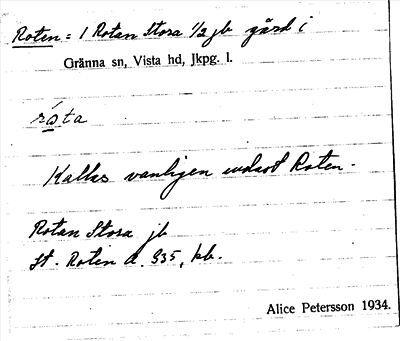 Roten = 1 Rotan Stora 1/2 jb gård i
Gränna sn, Vista hd, Jkpg. l.
Kallas vanligen endast Roten.
Rotan Stora jb
St. Roten d. 335, kb.
Alice Petersson 1934.